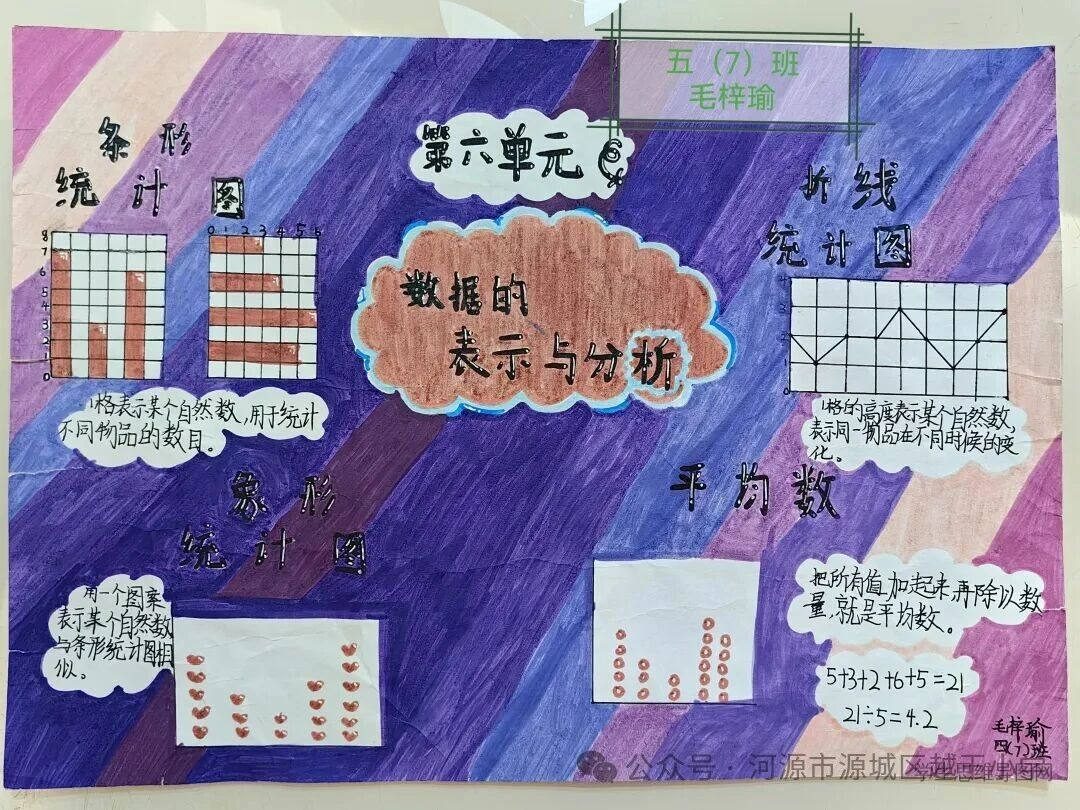 五（7）班
毛梓瑜
第六单元
条形
统计图
折线
统计图
8
7
6
5
4
3
2
1
0
0 1 2 3 4 5 6
数据的
表示与分析
1格表示某个自然数，用于统计
不同物品的数目。
1格的高度表示某个自然数，
表示同一物品在不同时候的变
化。
象形
统计图
平均数
用一个图案
表示某个自然数
与条形统计图相
似。
把所有值加起来，再除以数
量，就是平均数。
5+3+2+6+5=21
21÷5=4.2
毛梓瑜
四(7)班
公众号·河源市源城区越王小学